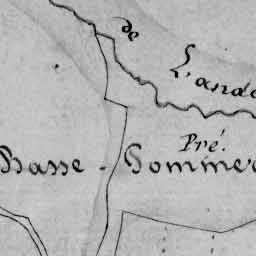 de
L'and
Pré.
Basse - Somme